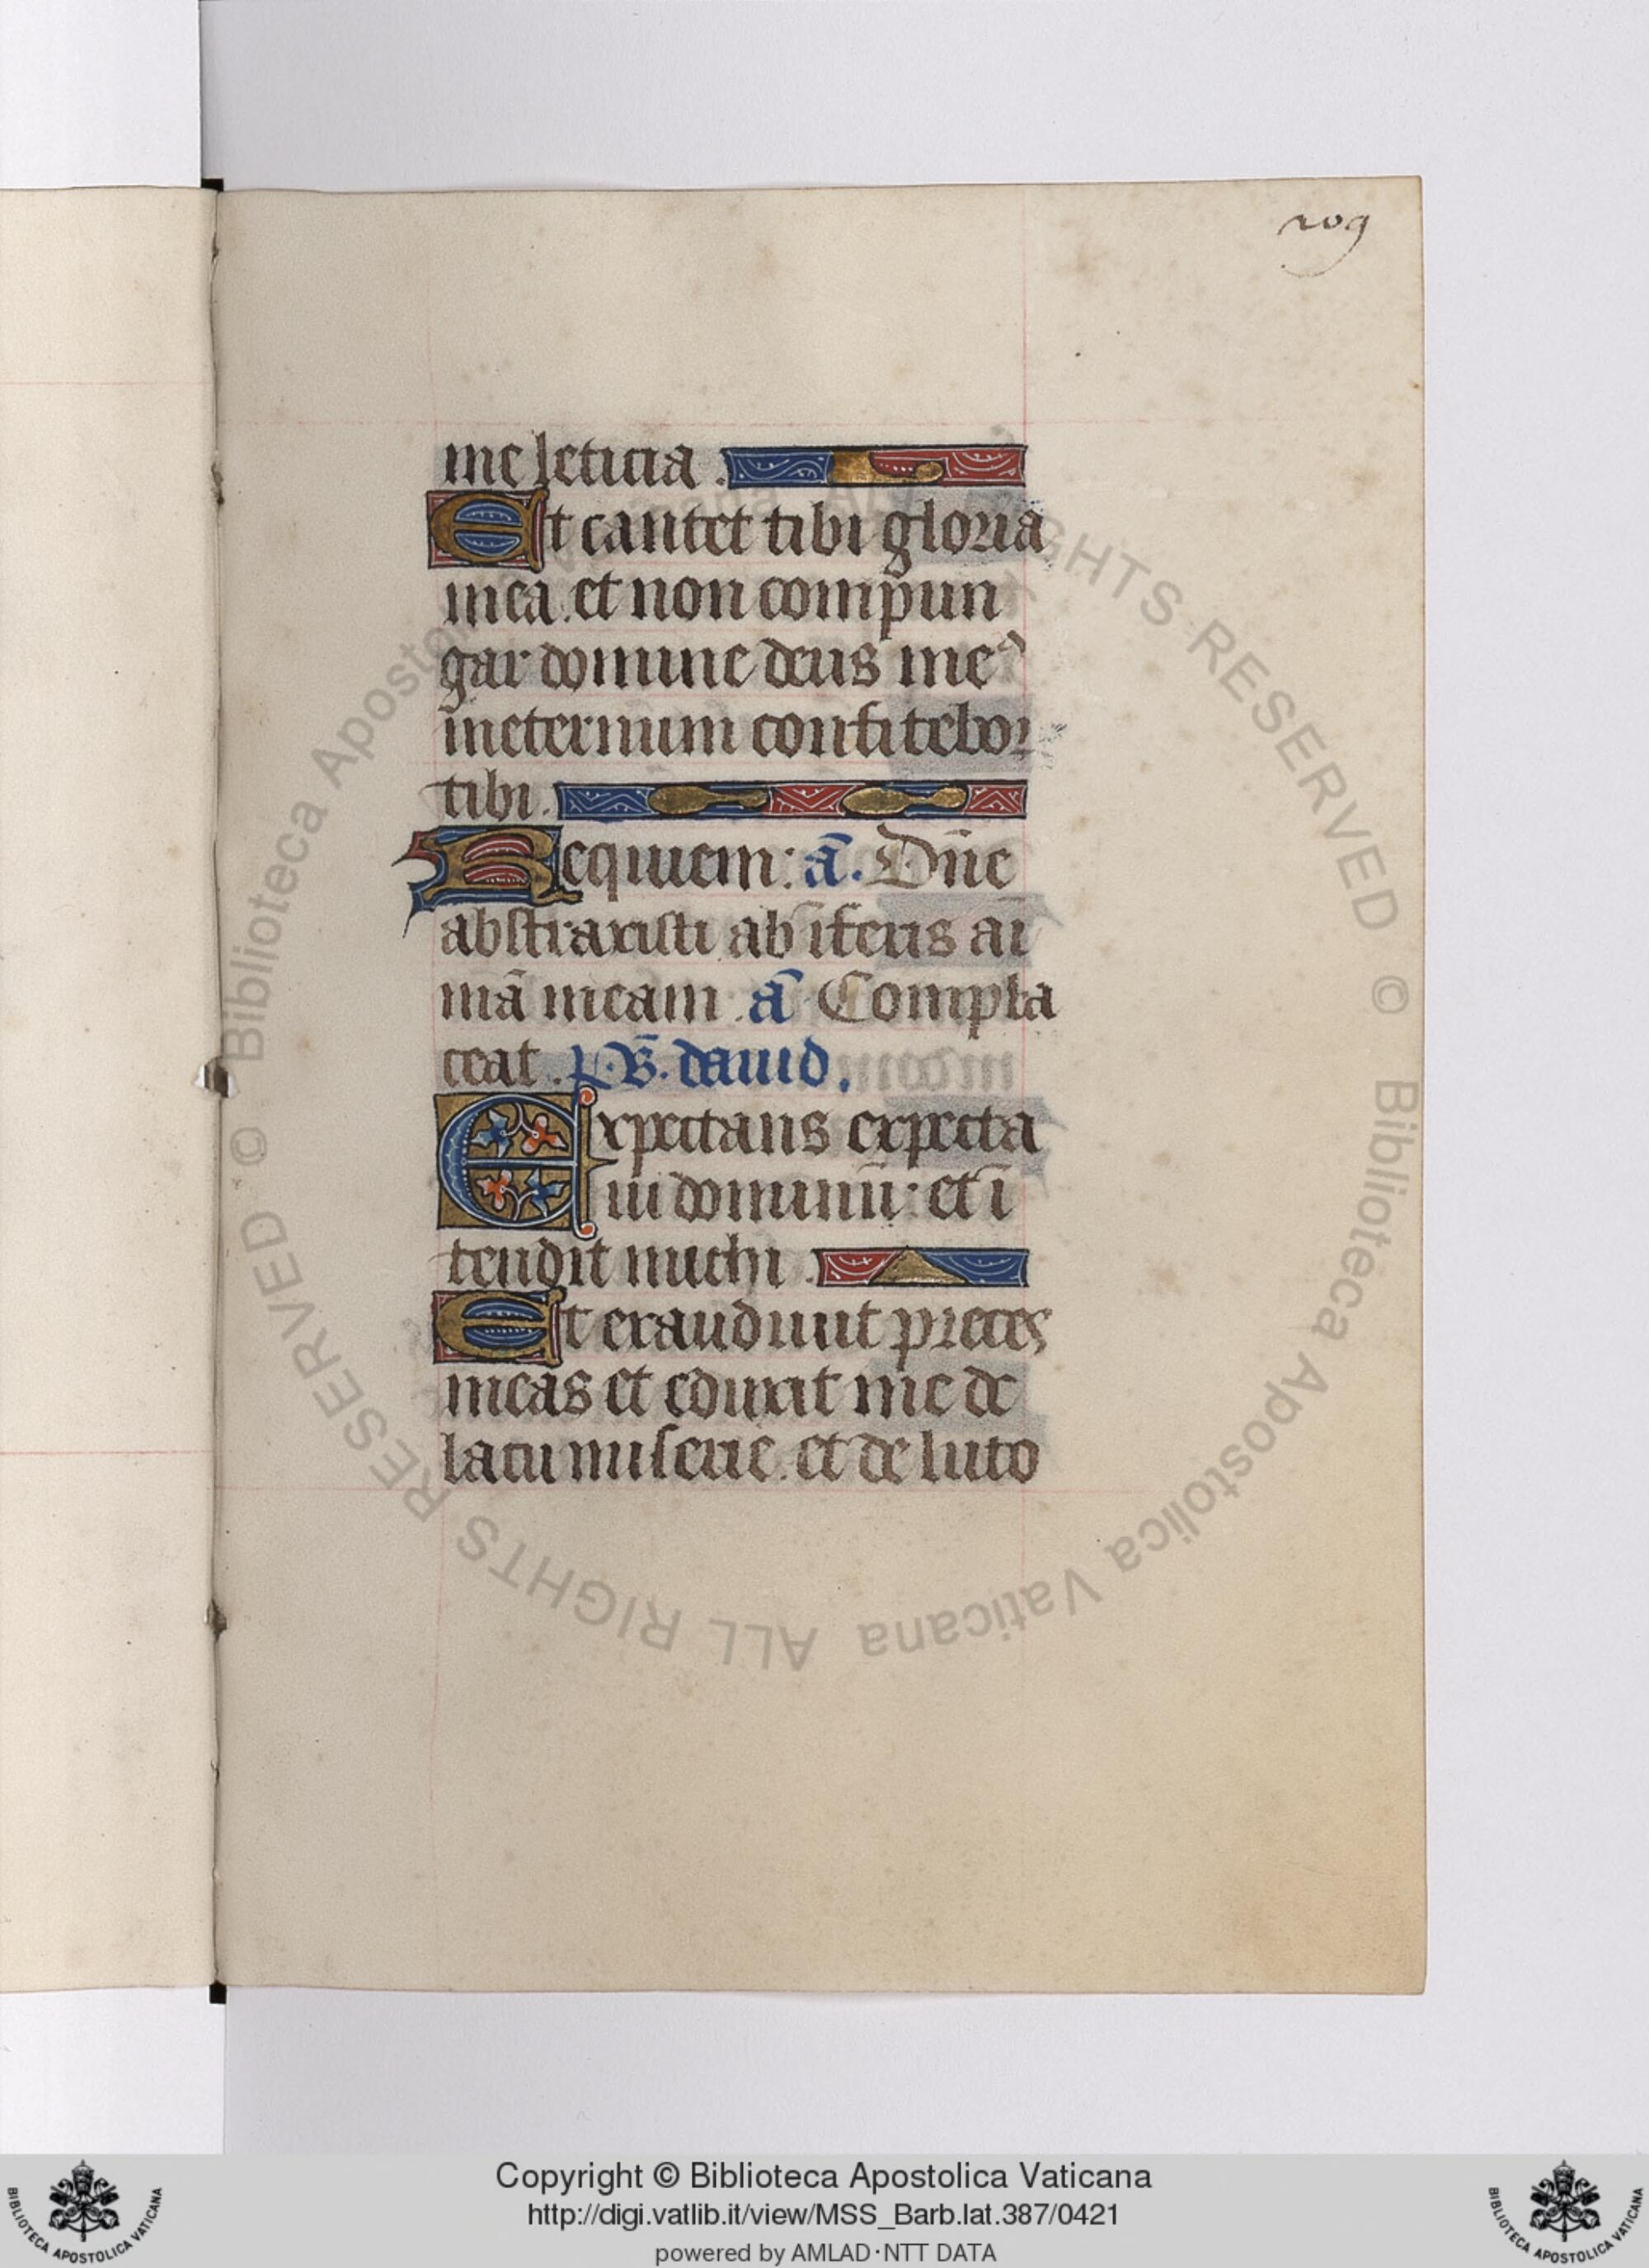 209
me leticia .
Et cantet tibi gloria
mea . et non compun
gar domine deus meꝰ
ineternum confitebor
tibi .
Requiem : an̄. Dn̄e
abstraxisti ab īferis ai
mā meam . ā Compla
ceat . ps. dauid .
Expectans expecta
ui dominū : et ī
tendit michi .
Et exaudiuit preces
meas et eduxit me de
lacu miserie . et de luto
© Biblioteca Apostolica Vaticana ALL RIGHTS RESERVED © Biblioteca Apostolica Vaticana ALL RIGHTS RESERVED
Copyright © Biblioteca Apostolica Vaticana
http://digi.vatlib.it/view/MSS_Barb.lat.387/0421
powered by AMLAD·NTT DATA
BIBLIOTECA APOSTOLICA VATICANA
BIBLIOTECA APOSTOLICA VATICANA